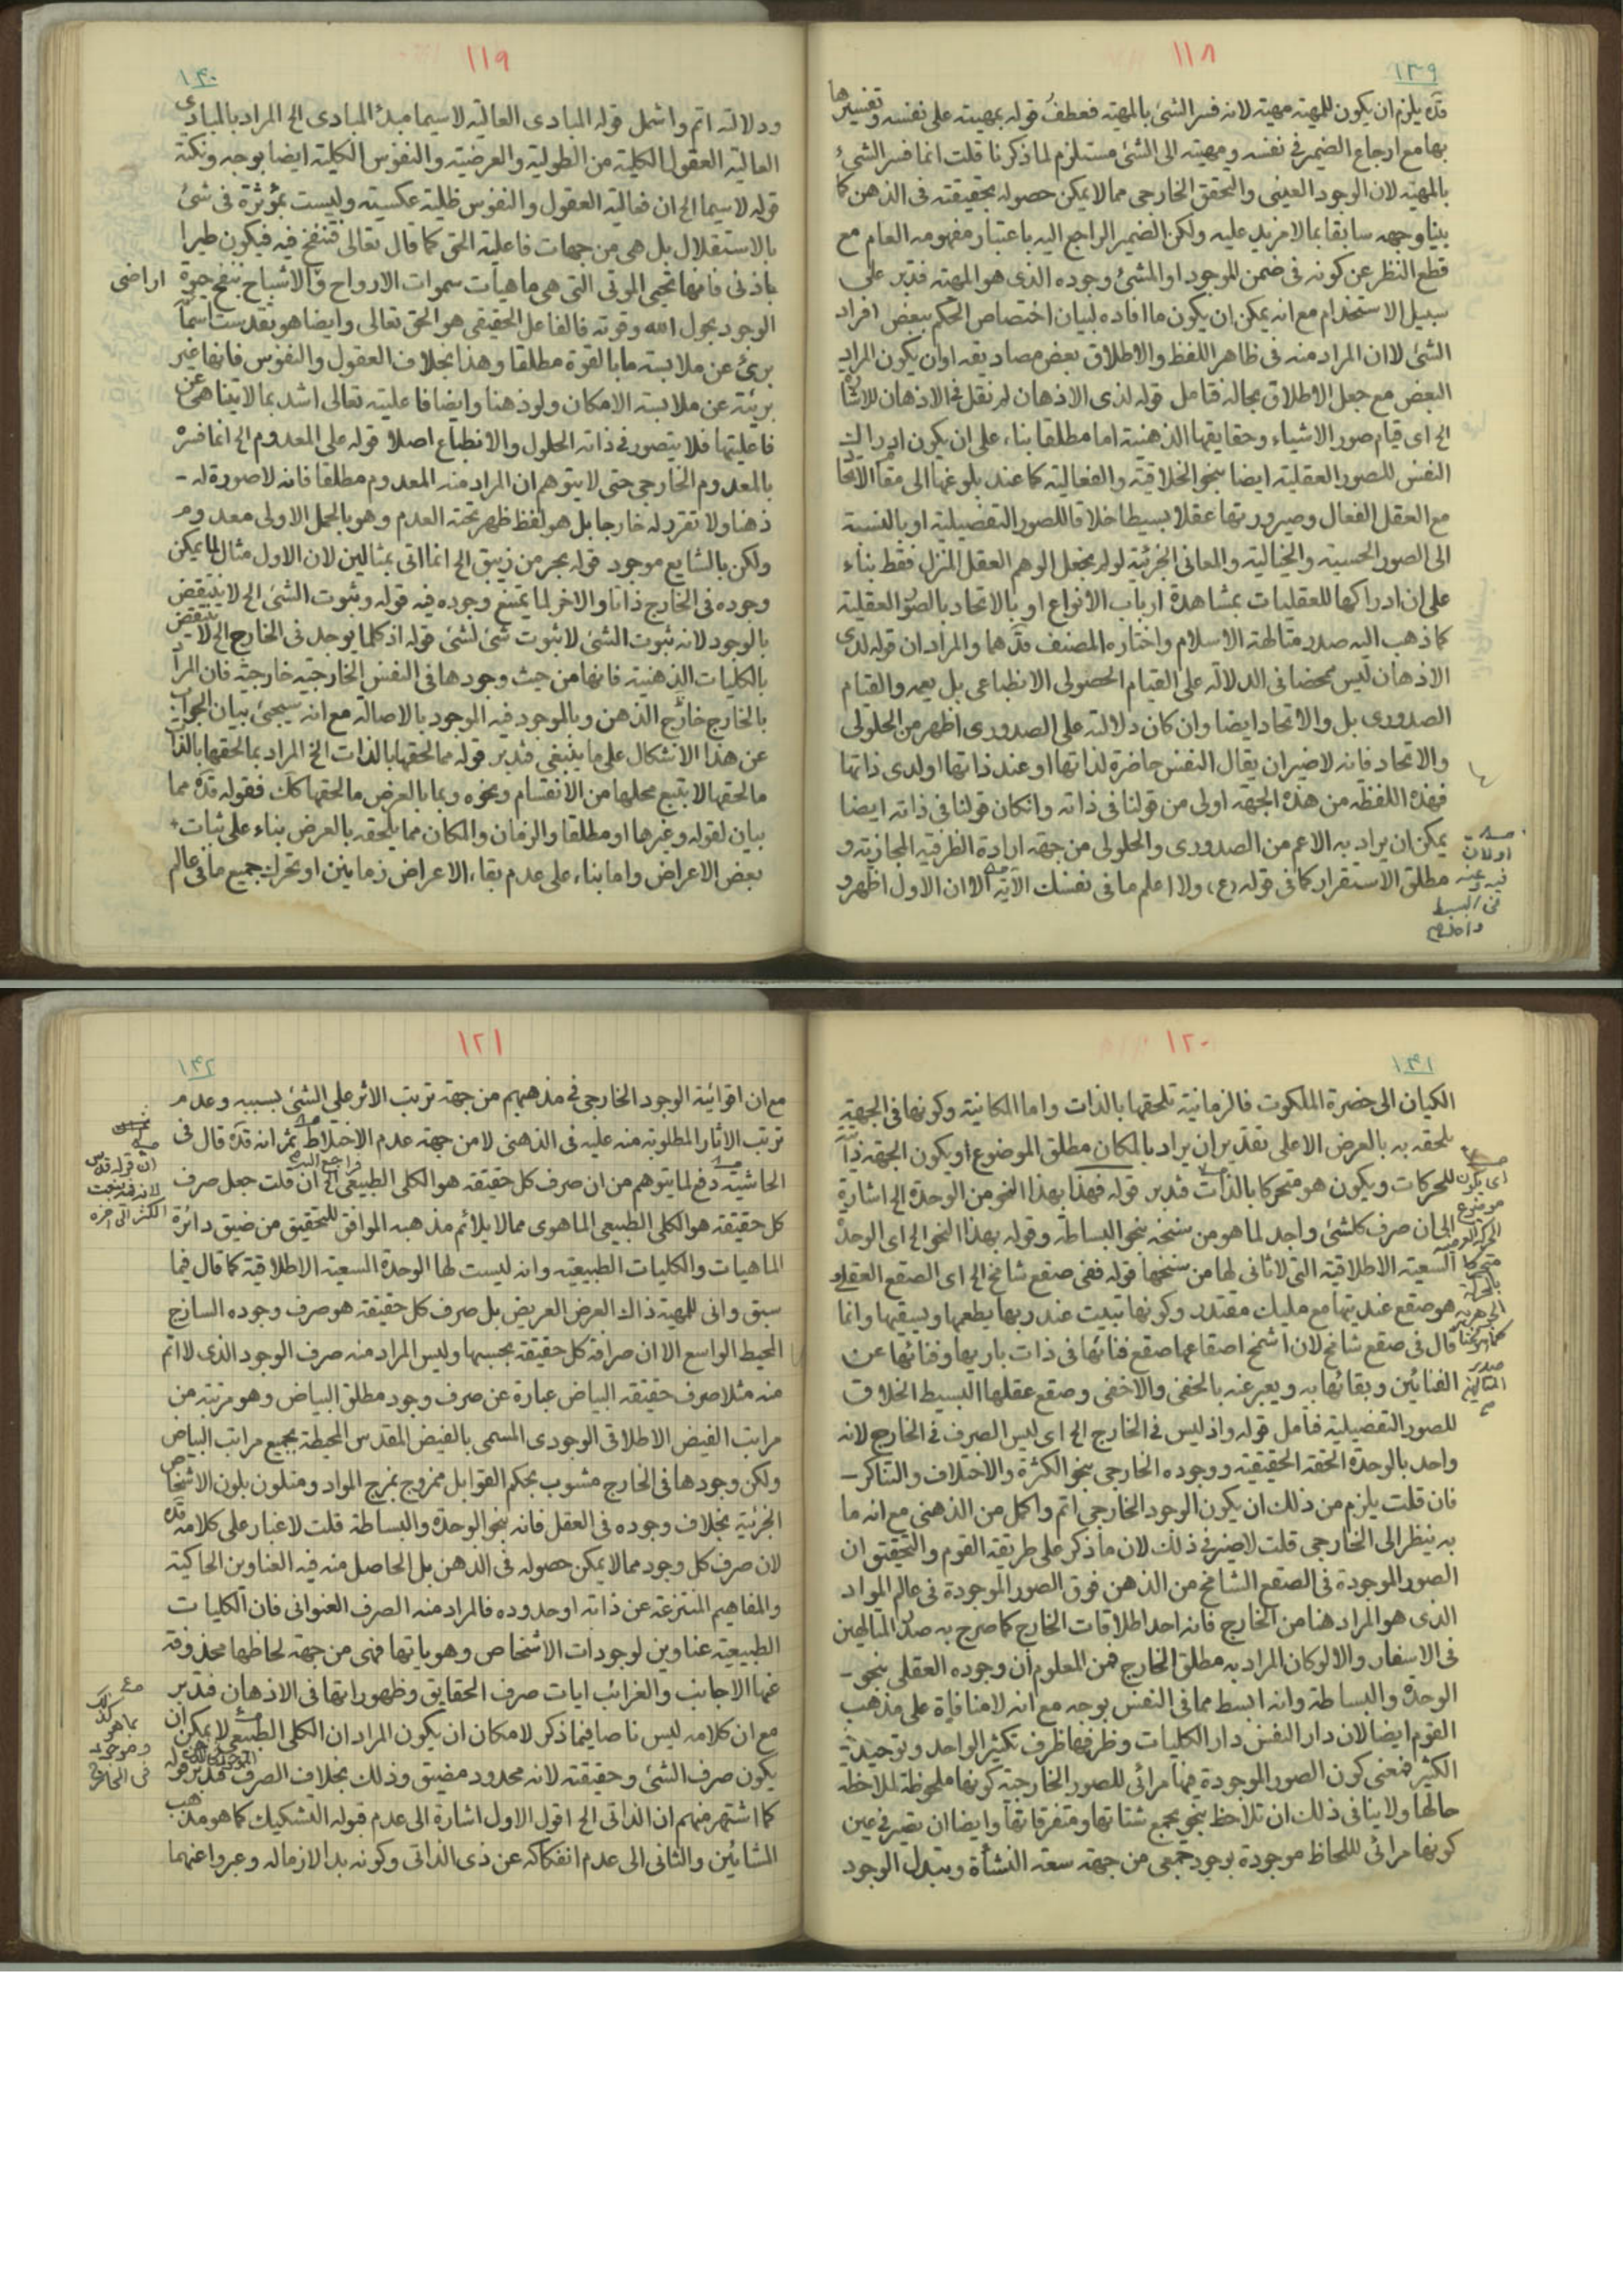 ١١٨
١٣٩
قدّه يلزم ان يكون للمهيته مهية لانه فسر الشئ بالمهيته فعطف قوله بمهيته على نفسه وتفسيرها
بها مع ارجاع الضمير فى نفسه ومهيته الى الشئ مستلزم لما ذكرنا قلت انما فسر الشئ
بالمهيته لان الوجود العينى والتحقق الخارجى مما لا يمكن حصوله بحقيقته فى الذهن كما
بينا وجهه سابقا بما لا مزيد عليه ولكن الضمير الراجع اليه باعتبار مفهومه العام مع
قطع النظر عن كونه فى ضمن الموجود او المشئ وجوده الذى هو المهيته فتدبر على
سبيل الاستخدام مع انه يمكن ان يكون ما افاده لبيان اختصاص الحكم ببعض افراد
الشئ لا ان المراد منه فى ظاهر اللفظ والاطلاق بعض مصاديقه او ان يكون المراد
البعض مع جعل الاطلاق بحاله فتامل قوله لذى الاذهان لم نقل فى الاذهان للاشارة
الخ اى قيام صور الاشياء وحقايقها الذهنية اما مطلقا بناء على ان يكون ادراك
النفس للصور العقلية ايضا بنحو الخلاقية والفعالية كما عند بلوغها الى مقام الاتحاد
مع العقل الفعال وصيرورتها عقلا بسيطا خلاقا للصور التفصيلية او بالنسبة
الى الصور الحسية والخيالية والمعانى الجزئية لو لم نجعل الوهم العقل المنزل فقط بناء
على ان ادراكها للعقليات بمشاهدة ارباب الانواع او بالاتحاد بالصور العقلية
كما ذهب اليه صدر متالهة الاسلام واختاره المصنف قدهما والمراد ان قوله لدى
الاذهان ليس محضا فى الدلالة على القيام الحصولى الانطباعى بل يعمه والقيام
الصدورى بل والاتحاد ايضا وان كان دلالته على الصدورى اظهر من الحلولى
والاتحاد فانه لا ضير ان يقال النفس حاضرة لذاتها او عند ذاتها او لدى ذاتها
فهذه اللفظه من هذه الجهة اولى من قولنا فى ذاته وان كان قولنا فى ذاته ايضا
يمكن ان يراد به الاعم من الصدورى والحلولى من جهة ارادة الظرفيه المجازية و
مطلق الاستقرار كما فى قوله (ع) ولا اعلم ما فى نفسك الآية الا ان الاول اظهر و
فيه وعنه
فى البسيط
واحد
١١٩
١٤٠
ودلالته اتم واشمل قوله المبادى العالية لا سيما مبدئ المبادى الخ المراد بالمبادى
العالية العقول الكلية من الطولية والعرضية والنفوس الكلية ايضا بوجه ونكتة
قوله لا سيما الخ ان فعالية العقول والنفوس ظلية عكسيته وليست بمؤثرة فى شئ
بالاستقلال بل هى من جهات فاعلية الحق كما قال تعالى فتنفخ فيه فيكون طيرا
باذنى فانها تحيى الموتى التى هى ماهيات سموات الارواح والاشباح بنفخ حيوة
اراضى
الوجود بحول الله وقوته فالفاعل الحقيقى هو الحق تعالى وايضا هو تقدست اسمائه
برئ عن ملابسة ما بالقوة مطلقا وهذا بخلاف العقول والنفوس فانها غير
بريئة عن ملابسة الامكان ولو ذهنا وايضا فاعليته تعالى اشد بما لا يتناهى عن
فاعليتها فلا يتصور فى ذاته الحلول والانطباع اصلا قوله على المعدوم الخ انما فسره
بالمعدوم الخارجى حتى لا يتوهم ان المراد منه المعدوم مطلقا فانه لا صورة له ـ
ذهنا ولا تقرر له خارجا بل هو لفظ ظهر تحته العدم وهو بالحمل الاولى معدوم
ولكن بالشايع موجود قوله بحر من زيبق الخ انما اتى بمثالين لان الاول مثال لما يمكن
وجوده فى الخارج ذاتا والاخر لما يمتنع وجوده فيه قوله وثبوت الشئ الخ لا ينتقض
بالوجود لانه ثبوت الشئ لا ثبوت شئ لشئ قوله اذ كلما يوجد فى الخارج الخ لا ينتقض
بالكليات الذهنية فانها من حيث وجودها فى النفس الخارجية خارجية فان المراد
بالخارج خارج الذهن وبالموجود فيه الموجود بالاصالة مع انه سيجئ بيان الجواب
عن هذا الاشكال على ما ينبغى فتدبر قوله مما لحقها بالذات الخ المراد بما لحقها بالذات
ما لحقها لا بتبع محلها من الانقسام ونحوه وبما بالعرض ما لحقها كك فقوله قده مما
بيان لقوله وغيرها او مطلقا والزمان والمكان مما يلحقه بالعرض بناء على ثبات
بعض الاعراض واما بناء على عدم بقاء الاعراض زمانين او تحرك جميع ما فى عالم
١٢٠
١٤١
الكيان الى حضرة الملكوت فالزمانية تلحقها بالذات واما المكانية وكونها فى الجهة
يلحقه به بالعرض الا على تقدير ان يراد بالمكان مطلق الموضوع او يكون الجهة ذاتية
للمحركات ويكون هو متحركا بالذات فتدبر قوله فهذا بهذا النحو من الوحدة الخ اشارة
الى ان صرف كلشئ واجد لما هو من سنخه بنحو البساطة وقوله بهذا النحو الخ اى الوحدة
السعية الاطلاقية التى لا ثانى لها من سنخها قوله ففى صقع شامخ الخ اى الصقع العقلى و
هو صقع عنديتها مع مليك مقتدر وكونها تبيت عند ربها يطعمها ويسقيها وانما
قال فى صقع شامخ لان اشمخ اصقاعها صقع فنائها فى ذات باريها وفنائها عن
الفنائين وبقائها به ويعبر عنه بالخفى والاخفى وصقع عقلها البسيط الخلاق
للصور التفصيلية فتأمل قوله واذ ليس فى الخارج الخ اى ليس الصرف فى الخارج لانه
واحد بالوحدة الحقة الحقيقية ووجوده الخارجى بنحو الكثرة والاختلاف والتناكر ـ
فان قلت يلزم من ذلك ان يكون الوجود الخارجى اتم واكمل من الذهنى مع انه ما
به ينظر الى الخارجى قلت لا ضير فى ذلك لان ما ذكر على طريقة القوم والتحقيق ان
الصور الموجودة فى الصقع الشامخ من الذهن فوق الصور الموجودة فى عالم المواد
الذى هو المراد هنا من الخارج فانه احد اطلاقات الخارج كما صرح به صدر المتالهين
فى الاسفار والا لو كان المراد به مطلق الخارج فمن المعلوم ان وجوده العقلى بنحو ـ
الوحدة والبساطة وانه ابسط مما فى النفس بوجه مع انه لا منافاة على مذهب
القوم ايضا لان دار النفس دار الكليات وظرفها ظرف تكثير الواحد وتوحيد
الكثير فمعنى كون الصور الموجودة فيها مرائى للصور الخارجية كونها ملحوظة لملاحظة
حالها ولا ينافى ذلك ان تلاحظ بنحو يجمع شتاتها ومتفرقاتها وايضا ان يصير فى عين
كونها مرائى للحاظ موجودة بوجود جمعى من جهة سعة النشأة وتبدل الوجود
اى يكون
موضوع
متحركا
بالحركة
الجوهرية
صدر
المتالهين
١٢١
١٤٢
مع ان اقوائية الوجود الخارجى فى مذهبهم من جهة ترتب الاثر على الشئ بسببه وعدم
ترتب الاثار المطلوبة منه عليه فى الذهنى لا من جهة عدم الاختلاط ثم انه قده قال فى
الحاشية دفع لما يتوهم من ان صرف كل حقيقة هو الكلى الطبيعى الخ ان قلت جعل صرف
كل حقيقة هو الكلى الطبيعى الماهوى مما لا يلائم مذهبه الموافق للتحقيق من ضيق دائرة
الماهيات والكليات الطبيعيه وانه ليست لها الوحدة السعية الاطلاقية كما قال فيما
سبق وانى للمهية ذاك العرض العريض بل صرف كل حقيقة هو صرف وجوده الساذج
المحيط الواسع الا ان صرافة كل حقيقة بحسبها وليس المراد منه صرف الوجود الذى لا اتم
منه مثلا صرف حقيقة البياض عبارة عن صرف وجود مطلق البياض وهو مرتبة من
مراتب الفيض الاطلاقى الوجودى المسمى بالفيض المقدس المحيطة بجميع مراتب البياض
ولكن وجودها فى الخارج مشوب بحكم القوابل ممزوج بمزج المواد ومتلون بلون الاشخاص
الجزئية بخلاف وجوده فى العقل فانه بنحو الوحدة والبساطة قلت لا غبار على كلامه قده
لان صرف كل وجود مما لا يمكن حصوله فى الذهن بل الحاصل منه فيه العناوين الحاكية
والمفاهيم المنتزعة عن ذاته او حدوده فالمراد منه الصرف العنوانى فان الكليات
الطبيعية عناوين لوجودات الاشخاص وهوياتها فهى من جهة لحاظها محذوفة
عنها الاجانب والغرائب ايات صرف الحقايق وظهوراتها فى الاذهان فتدبر
مع ان كلامه ليس ناصا فيما ذكر لامكان ان يكون المراد ان الكلى الطبيعى لا يمكن ان
يكون صرف الشئ وحقيقته لانه محدود مضيق وذلك بخلاف الصرف فتدبر قوله
كما اشتهر منهم ان الذاتى الخ اقول الاول اشارة الى عدم قبوله التشكيك كما هو مذهب
المشائين والثانى الى عدم انفكاكه عن ذى الذاتى وكونه بدا لازما له وعبروا عنهما
ان قوله قدس
لانه قد يثبت
الكثير الى اخره
بما هو
موجود
فى الخارج